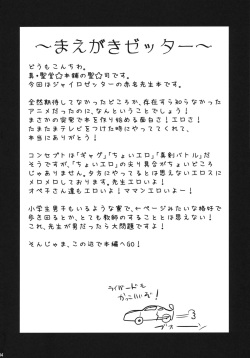 ～まえがきゼッター～
どうもこんちわ。
真・聖堂☆本舗の聖☆司です。
今回はジャイロゼッターの赤名先生本です。
全然期待してなかったどころか、存在すら知らなかった
アニメだったのに、なんということでしょう！
まさかの突発で本を作り始める面白さ！エロさ！
たまたまテレビをつけた時にやっててくれて、
本当にありがとう！
コンセプトは「ギャグ」「ちょいエロ」「真剣バトル」だ
そうですが、「ちょいエロ」の尖り具合がちょいどころ
じゃありません。夕方にやるとは思えないエロスに
メロメロしております。先生エロいよ！
オペ子さん達もエロいよ！ママンエロいよー！
小学生男子もいるような寮で、1ページみたいな格好で
歩き回るとか、とても教師のすることとは思えない！
これ、先生が男だったら大問題ですよ！
そんじゃま、この辺で本編へGO！
ライバードも
かっこいいぞ！
ブスーン